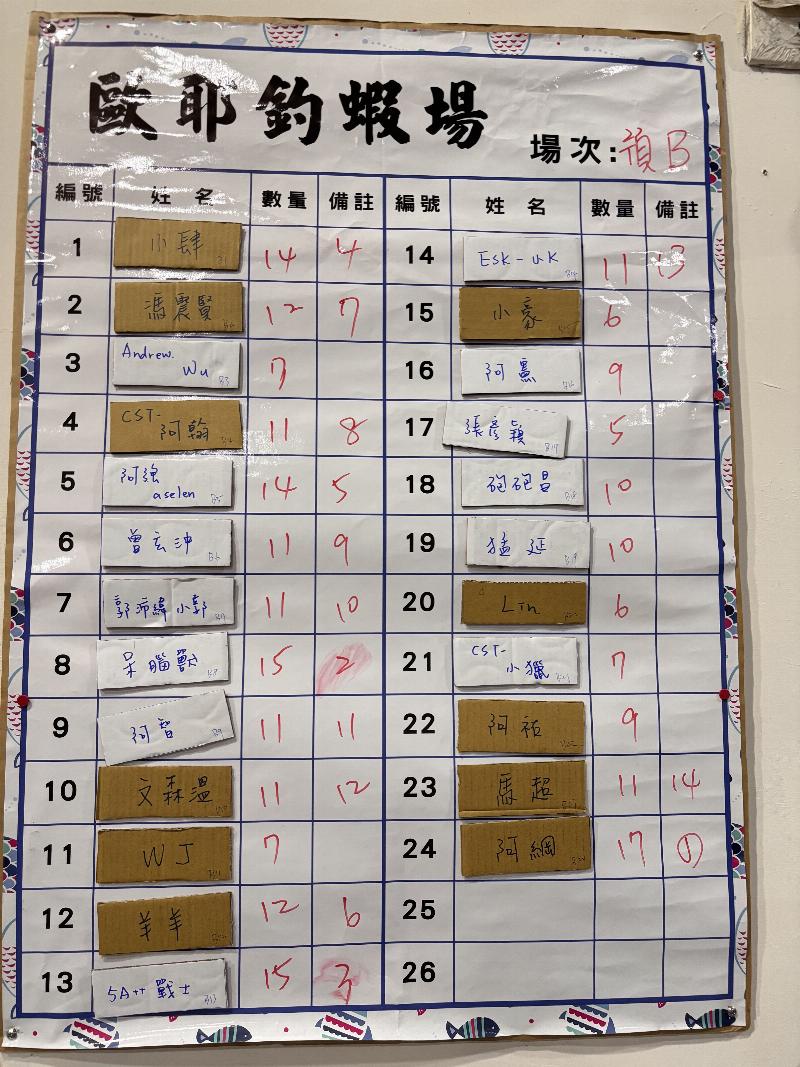 歐耶釣蝦場
場次:預B
編號 姓名 數量 備註 編號 姓名 數量 備註
1 小肆 14 4
2 馮震賢 12 7
3 Andrew. Wu 7
4 CST-阿翰 11 8
5 阿強 aselen 14 5
6 曾玄沖 11 9
7 郭沛緯小郭 11 10
8 呆腦獸 15 2
9 阿智 11 11
10 文森溫 11 12
11 WJ 7
12 羊羊 12 6
13 5A++戰士 15 3
14 ESK-UK 11 13
15 小豪 6
16 阿憲 9
17 張彥穎 5
18 砲砲昌 10
19 猛延 10
20 Lin 6
21 CST-小獵 7
22 阿祐 9
23 馬超 11 14
24 阿綱 17 ①
25
26